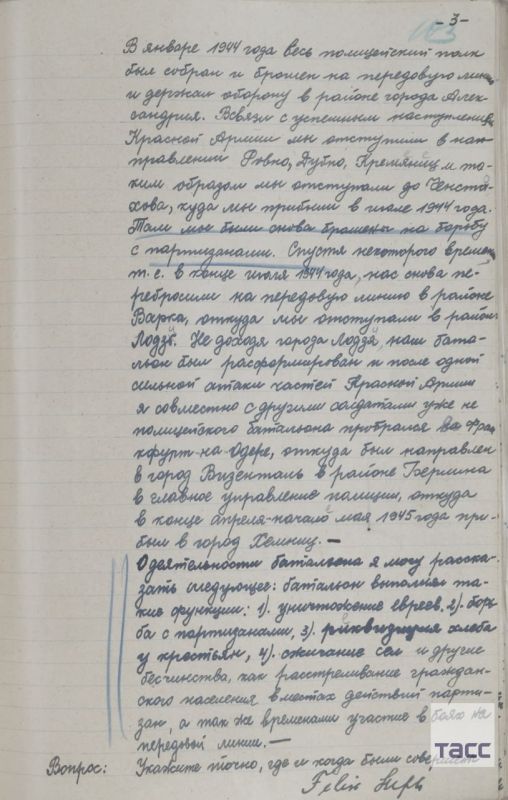 - 3 -
В январе 1944 года весь полицейский полк
был собран и брошен на передовую линию
и держал оборону в районе города Алек-
сандрия. Всвязи с успешным наступлением
Красной Армии мы отступили в нап-
правлении Ровно, Дубно, Кремяниц и та-
ким образом мы отступали до Ченста-
хова, куда мы прибыли в июле 1944 года.
Там мы были снова брошены на борьбу
с партизанами. Спустя некоторого времени
т.е. в конце июля 1944 года, нас снова пе-
ребросили на передовую линию в районе
Варка, откуда мы отступали в район
Лодзь. Не доходя города Лоддя, наш бата-
льон был расформирован и после одной
сильной атаки частей Красной Армии
я совместно с другими солдатами уже не
полицейского батальона пробрался во Фран
кфурт-на-Одере, откуда был направлен
в город Визенталь в районе Берлина
в главное управление полиции, откуда
в конце апреля-начало мая 1945 года при-
был в город Хемниц. —
О деятельности батальона я могу расска-
зать следующее: батальон выполнял та-
кие функции: 1). уничтожение евреев, 2). борь-
ба с партизанами, 3). реквизиция хлеба
у крестьян, 4). сжигание сел и другие
бесчинства, как расстреливание граждан-
ского населения в местах действий парти-
зан, а так же временами участие в боях на
передовой линии. —
Вопрос: Укажите точно, где и когда были
Felix
ТАСС